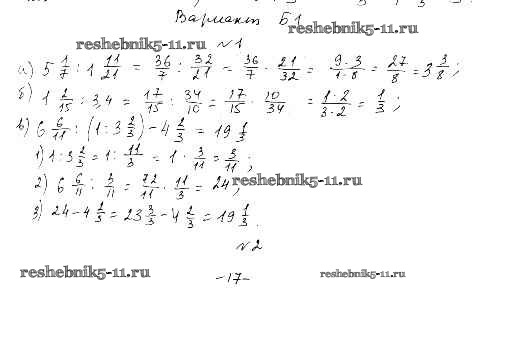 Вариант Б1
reshebnik5-11.ru
reshebnik5-11.ru
№1
а) 5 1/7 : 1 11/21 = 36/7 : 32/21 = 36/7 · 21/32 = 9·3/1·8 = 27/8 = 3 3/8;
б) 1 2/15 : 3,4 = 17/15 : 34/10 = 17/15 · 10/34 = 1·2/3·2 = 1/3;
в) 6 6/11 : (1 : 3 2/3) - 4 2/3 = 19 1/3
1) 1 : 3 2/3 = 1 : 11/3 = 1 · 3/11 = 3/11;
2) 6 6/11 : 3/11 = 72/11 · 11/3 = 24;
reshebnik5-11.ru
3) 24 - 4 2/3 = 23 3/3 - 4 2/3 = 19 1/3.
№2
reshebnik5-11.ru
-17-
reshebnik5-11.ru